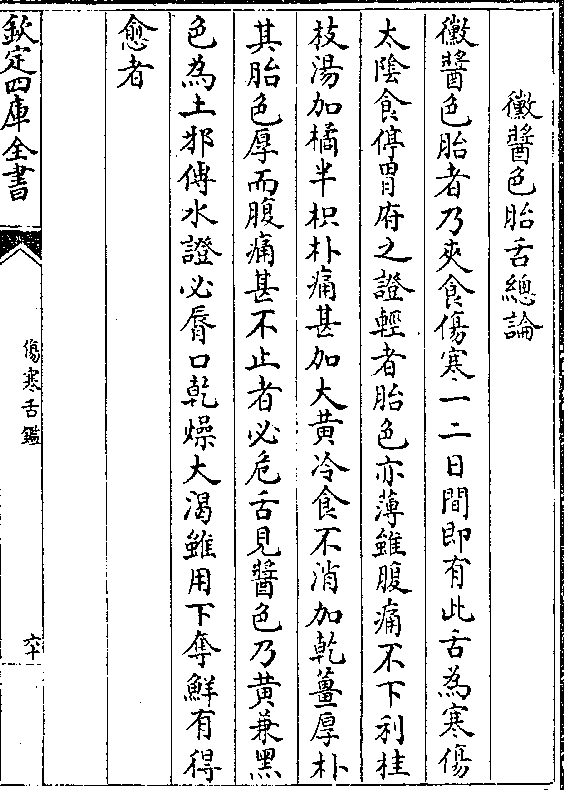 黴醬色胎舌總論
黴醬色胎者乃夾食傷寒一二日間即有此舌為寒傷
太陰食停胃府之證輕者胎色亦薄雖腹痛不下利桂
枝湯加橘半枳朴痛甚加大黃冷食不消加乾薑厚朴
其胎色厚而腹痛甚不止者必危舌見醬色乃黃兼黑
色為土邪傳水證必脣口乾燥大渴雖用下奪鮮有得
愈者
欽定四庫全書
傷寒舌鑑
六十